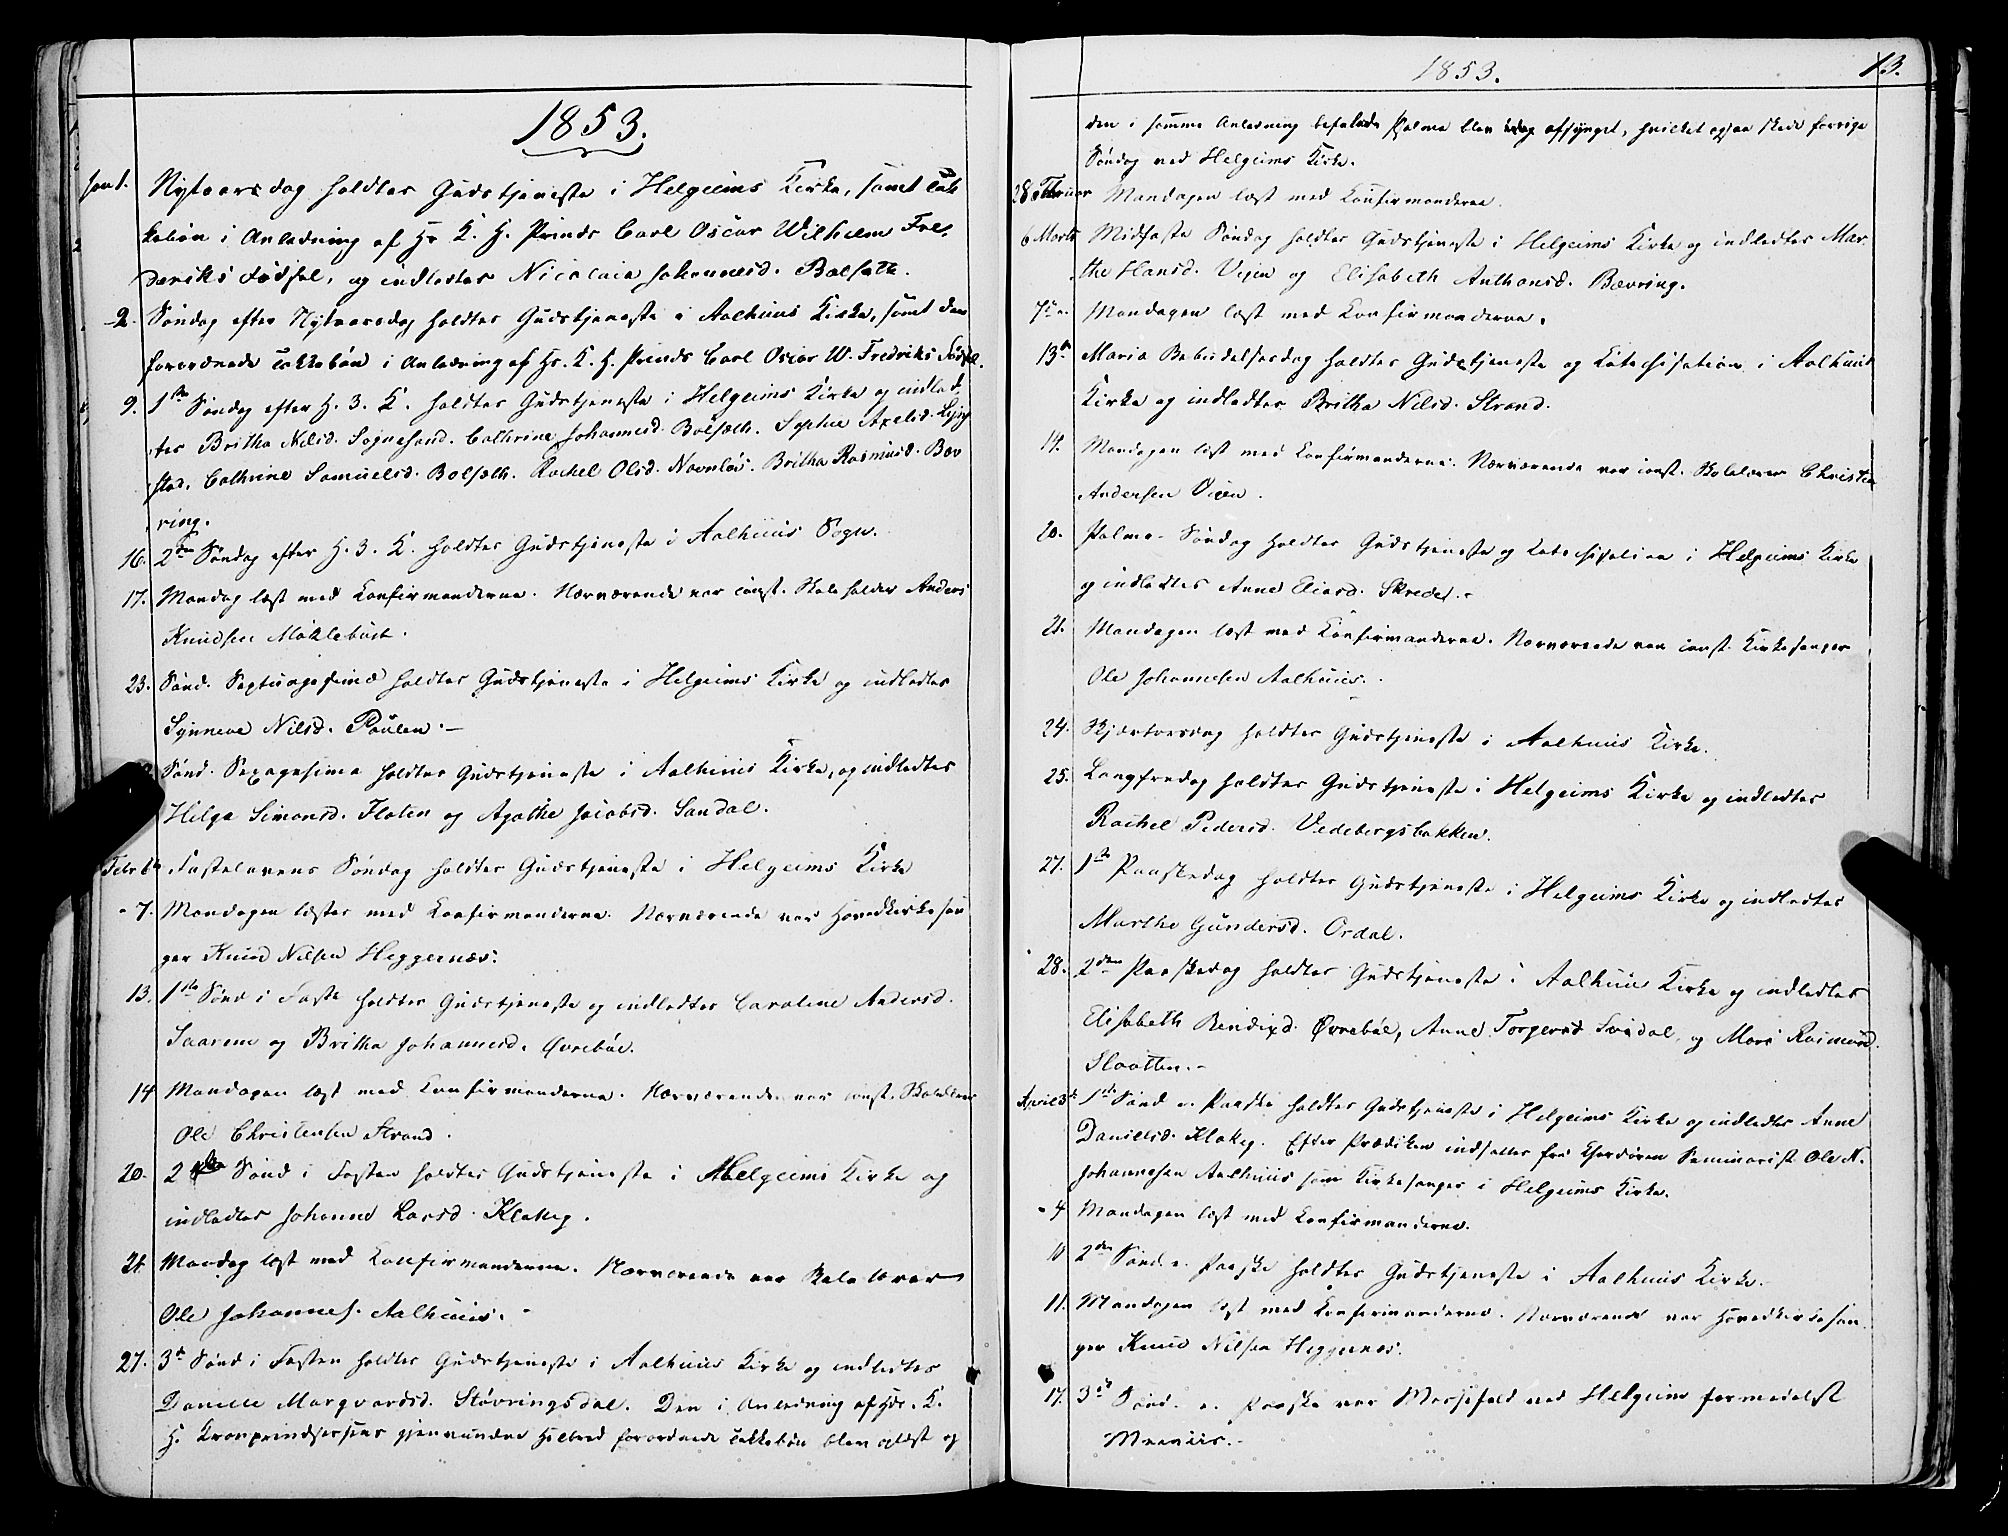 1853.
Nytaarsdag holdtes Gudstjeneste i Helgeims Kirke, samt Tak-
kebøn i Anledning af Hs K. H. Prinds Carl Oscar Wilhelm Fre-
deriks Fødsel, og indledtes Nicolaia Johannesd. Bolsæth.
2. Søndag efter Nytaarsdag holdtes Gudstjeneste i Aalhuus Kirke, samt den
forordnede Takkebøn i Anledning af Hs. K. H. Prinds Carl Oscar W. Fredriks Fødsel.
9. 1ste Søndag efter H. 3. K. holdtes Gudstjeneste i Helgeims Kirke og indled-
tes Britha Nilsd. Sognesand. Cathrine Johannesd. Bolsæth. Sophie Axelsd.
stad. Cathrine Samuelsd. Bolsæth. Rachel Olsd. Navnløs. Britha Rasmusd. Bæv
ring.
16. 2den Søndag efter H. 3. K. holdtes Gudstjeneste i Aalhuus Sogn.
17. Mandag læst med Konfirmanderne. Nærværende var const. Skoleholder Anders
Knudsen Møklebust.
23. Sønd. Septuagesima holdtes Gudstjeneste i Helgeims Kirke og indledtes
Synneve Nilsd. Paulen. —
Sønd. Sexagesima holdtes Gudstjeneste i Aalhuus Kirke, og indledtes
Helga Simonsd. Floten og Agathe Jacobsd. Sandal.
Febr 6te Fastelavens Søndag holdtes Gudstjeneste i Helgeims Kirke
- 7. Mandagen læstes med Konfirmanderne. Nærværende var Hovedkirkesan
ger Knud Nilsen Heggernæs.
13. 1ste Sønd i Faste holdtes Gudstjeneste og indledtes Caroline Andersd.
Saarem og Britha Johannesd. Øvrebøe.
14 Mandagen læst med Konfirmanderne. Nærværende var const. Skolelærer
Ole Christensen Strand.
20. 2den Sønd i Fasten holdtes Gudstjeneste i Helgeims Kirke og
indledtes Johanne Larsd. Klakeg.
21. Mandag læst med Konfirmanderne. Nærværende var Skolelærer
Ole Johannes. Aalhuus. -
27. 3die Sønd i Fasten holdtes Gudstjeneste i Aalhuus Kirke og indledtes
Danielle Marqvardsd. Støvringsdal. Den i Anledning af Hds. K.
H. Kronprindsessens gjenvundne Helbred forordnede Takkebøn blev oplæst og
1853. 13.
den i samme Anledning befalede Psalme blev idag afsynget, hvilket ogsaa skede forrige
Søndag ved Helgeims Kirke.
28 Februar Mandagen læst med Konfirmanderne.
6 Marts Midfaste Søndag holdtes Gudstjeneste i Helgeims Kirke og indledtes Mar-
the Hansd. Vejen og Elisabeth Anthonsd. Bævring.
7de Mandagen læst med Konfirmanderne.
13de Maria Bebudelsesdag holdtes Gudstjeneste og Katechisation i Aalhuus
Kirke og indledtes Britha Nilsd. Strand.
14. Mandagen læst med Konfirmanderne. Nærværende var const. Skolelærer Christen
Andersen
20. Palme-Søndag holdtes Gudstjeneste og Katechisation i Helgeims Kirke
og indledtes Anne Eliasd. Skrede. -
21. Mandagen læst med Konfirmanderne. Nærværende var const. Kirkesanger
Ole Johannesen Aalhuus.
24. Skjærtorsdag holdtes Gudstjeneste i Aalhuus Kirke.
25. Langfredag holdtes Gudstjeneste i Helgeims Kirke og indledtes
Rachel Pedersd. Vedebergsbakken.
27. 1ste Paaskedag holdtes Gudstjeneste i Helgeims Kirke og indledtes
Marthe Gundersd. Ordal.
28. 2den Paaskedag holdtes Gudstjeneste i Aalhuus Kirke og indledtes
Elisabeth Bendixd. Øvrebøe, Anne Torgersd Sandal, og Mari Rasmusd.
Slaatten. -
April 3die 1ste Sønd. e. Paaske holdtes Gudstjeneste i Helgeims Kirke og indledtes Anne
Danielsd. Klakeg. Efter Prædiken indsattes fra Chordøren Seminarist Ole A.
Johannesen Aalhuus som Kirkesanger i Helgeims Kirke.
- 4 Mandagen læst med Konfirmanderne.
10 2den Sønd. e. Paaske holdtes Gudstjeneste i Aalhuus Kirke.
11. Mandagen læst med Konfirmanderne. Nærværende var Hovedkirkesan
ger Knud Nilsen Heggernæs.
17. 3die Sønd. e. Paaske var Messefald ved Helgeim formedelst